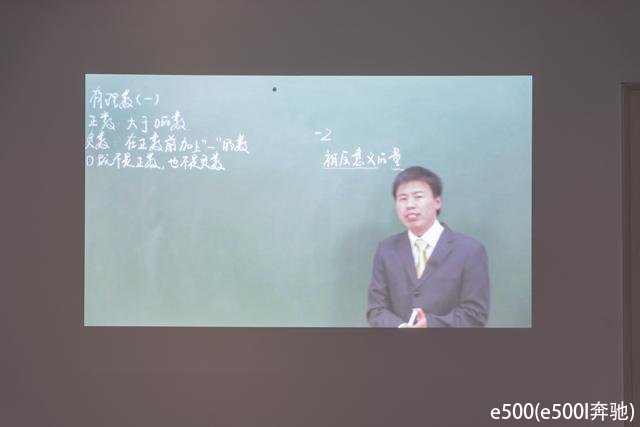 有理数(一)
正数 大于0的数
负数 在正数前加上"-"的数
0既不是正数,也不是负数
-2
相反意义的量
e500(e500l奔驰)